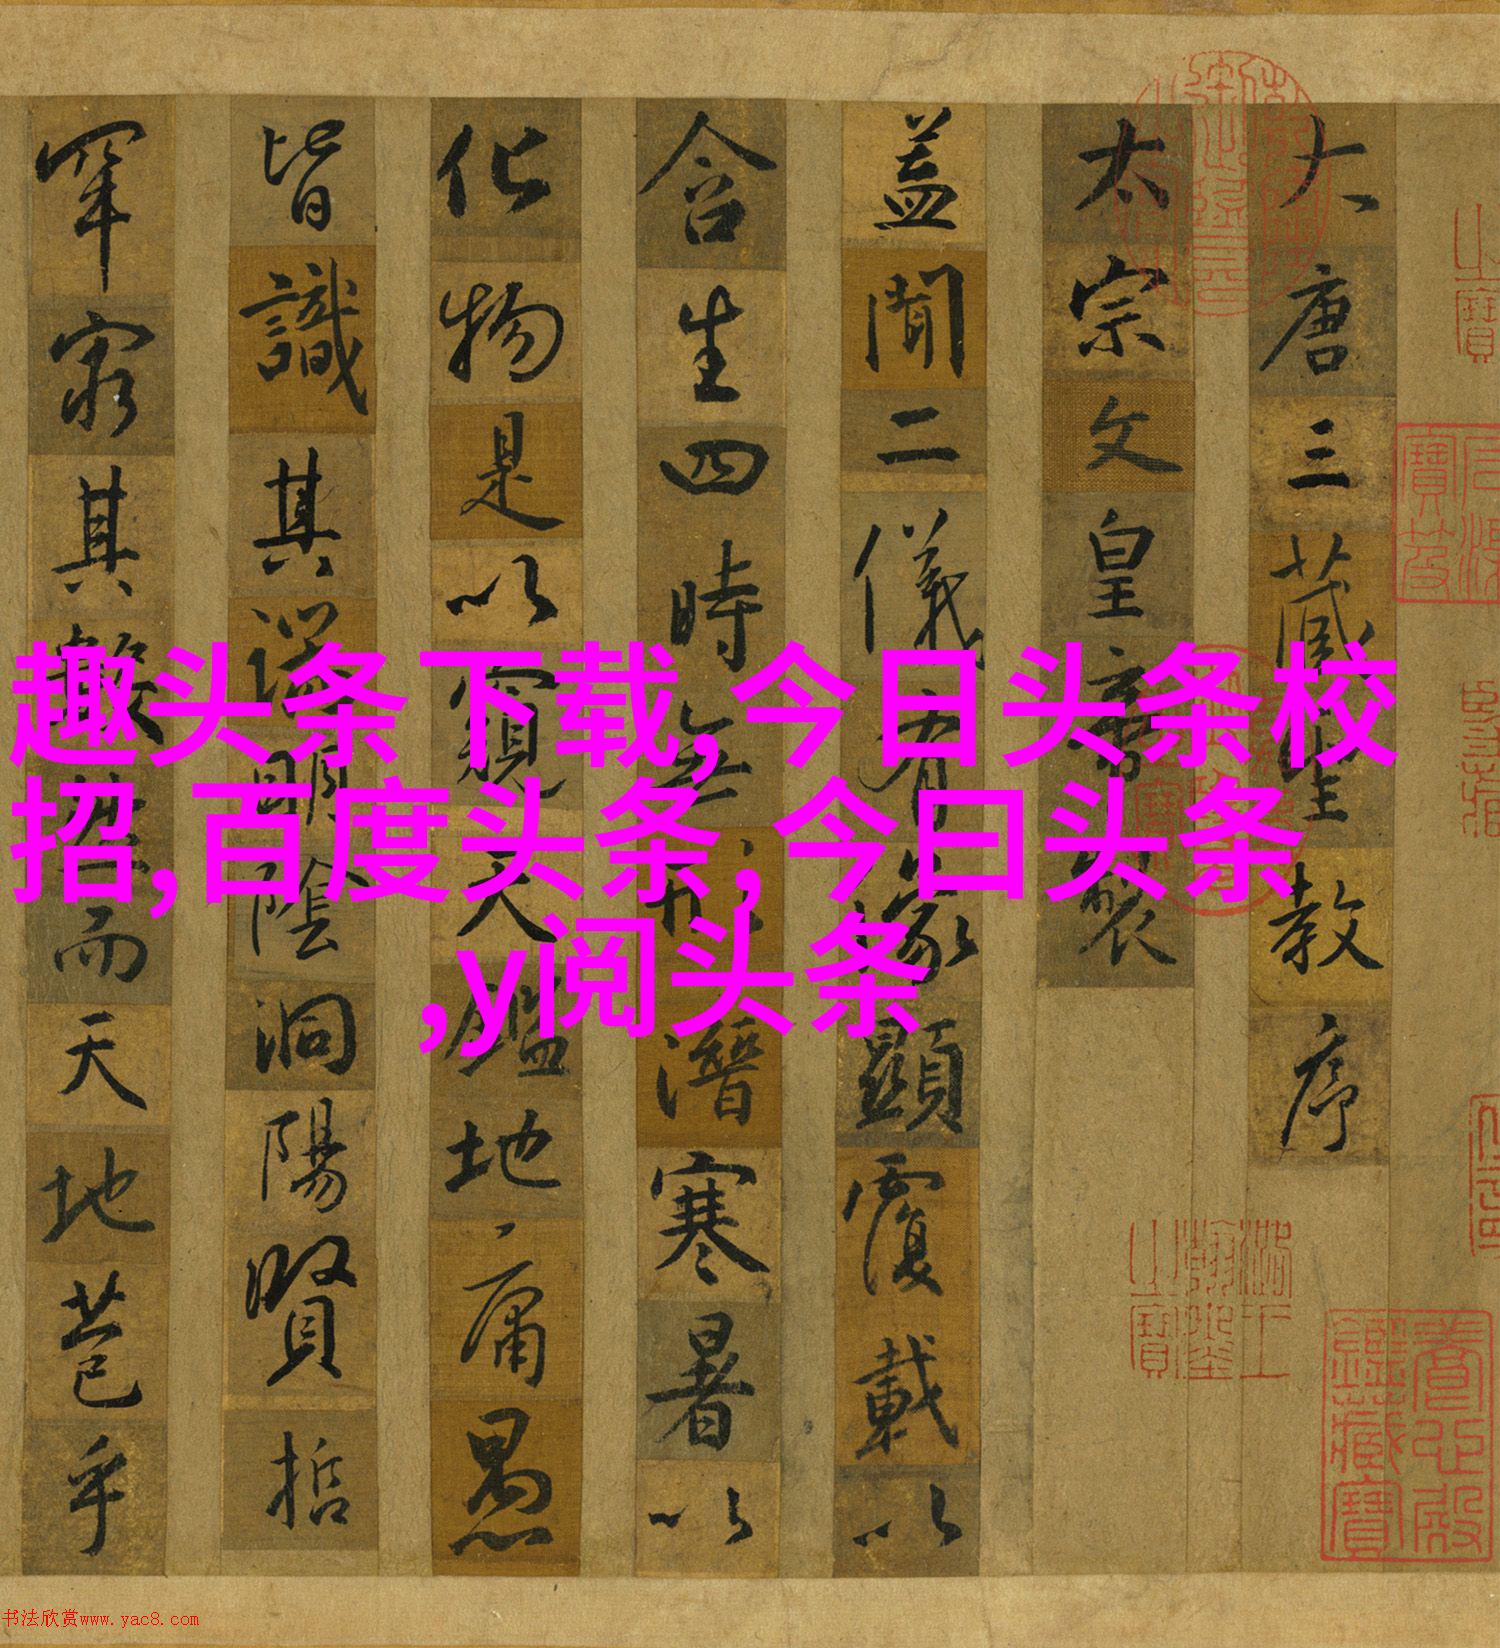 大唐三藏聖教序
太宗文皇帝製
蓋聞二儀有象顯覆載以
含生四時無形潛寒暑以
化物是以窺天鑑地庸愚
皆識其端明陰洞陽賢哲
罕窮其數然而天地苞乎
趣头条下载,今日头条校
招,百度头条,今曰头条
,y阅头条
石渠
寶笈
養心殿
鑑藏寶
书法欣赏www.yac8.com